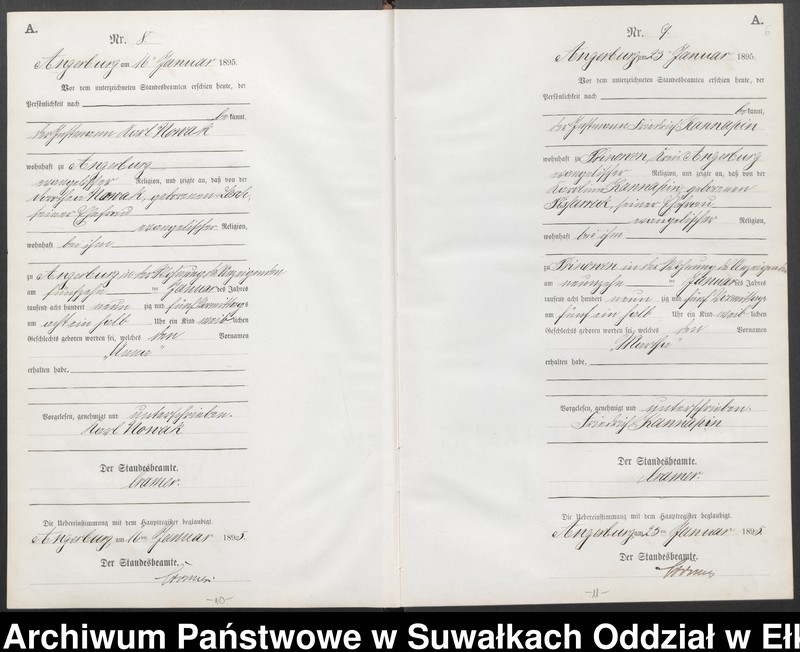 A.
Nr. 8.
Angerburg am 16 Januar 1895.
Vor dem unterzeichneten Standesbeamten erschien heute, der
Persönlichkeit nach
be kannt,
der Karl Nowak
wohnhaft zu Angerburg
evangelischer Religion, und zeigte an, daß von der
Nowak, geborenen
seiner Ehefrau
evangelischer Religion,
wohnhaft bei ihm
zu Angerburg in der Wohnung des Anzeigenden
am fünfzehn ten Januar des Jahres
tausend acht hundert neun zig und fünf Vormittags
um acht ein halb Uhr ein Kind weib lichen
Geschlechts geboren worden sei, welches den Vornamen
erhalten habe,
Vorgelesen, genehmigt und unterschrieben.
Karl Nowak
Der Standesbeamte.
Cramer.
Die Uebereinstimmung mit dem Hauptregister beglaubigt.
Angerburg am 16ten Januar 1895.
Der Standesbeamte.
Cramer.
-10-
A.
Nr. 9.
Angerburg am 23 Januar 1895.
Vor dem unterzeichneten Standesbeamten erschien heute, der
Persönlichkeit nach
be kannt,
der Friedrich Kannapin
wohnhaft zu Kreis Angerburg
evangelischer Religion, und zeigte an, daß von der
Karoline Kannapin, geborenen
seiner Ehefrau
evangelischer Religion,
wohnhaft bei ihm
zu in der Wohnung des Anzeigenden
am neunzehn ten Januar des Jahres
tausend acht hundert neun zig und fünf Vormittags
um fünf ein halb Uhr ein Kind weib lichen
Geschlechts geboren worden sei, welches den Vornamen
"Martha"
erhalten habe,
Vorgelesen, genehmigt und unterschrieben.
Friedrich Kannapin
Der Standesbeamte.
Cramer.
Die Uebereinstimmung mit dem Hauptregister beglaubigt.
Angerburg am 23ten Januar 1895.
Der Standesbeamte.
Cramer
-11-
Archiwum Państwowe w Suwałkach Oddział w Ełk